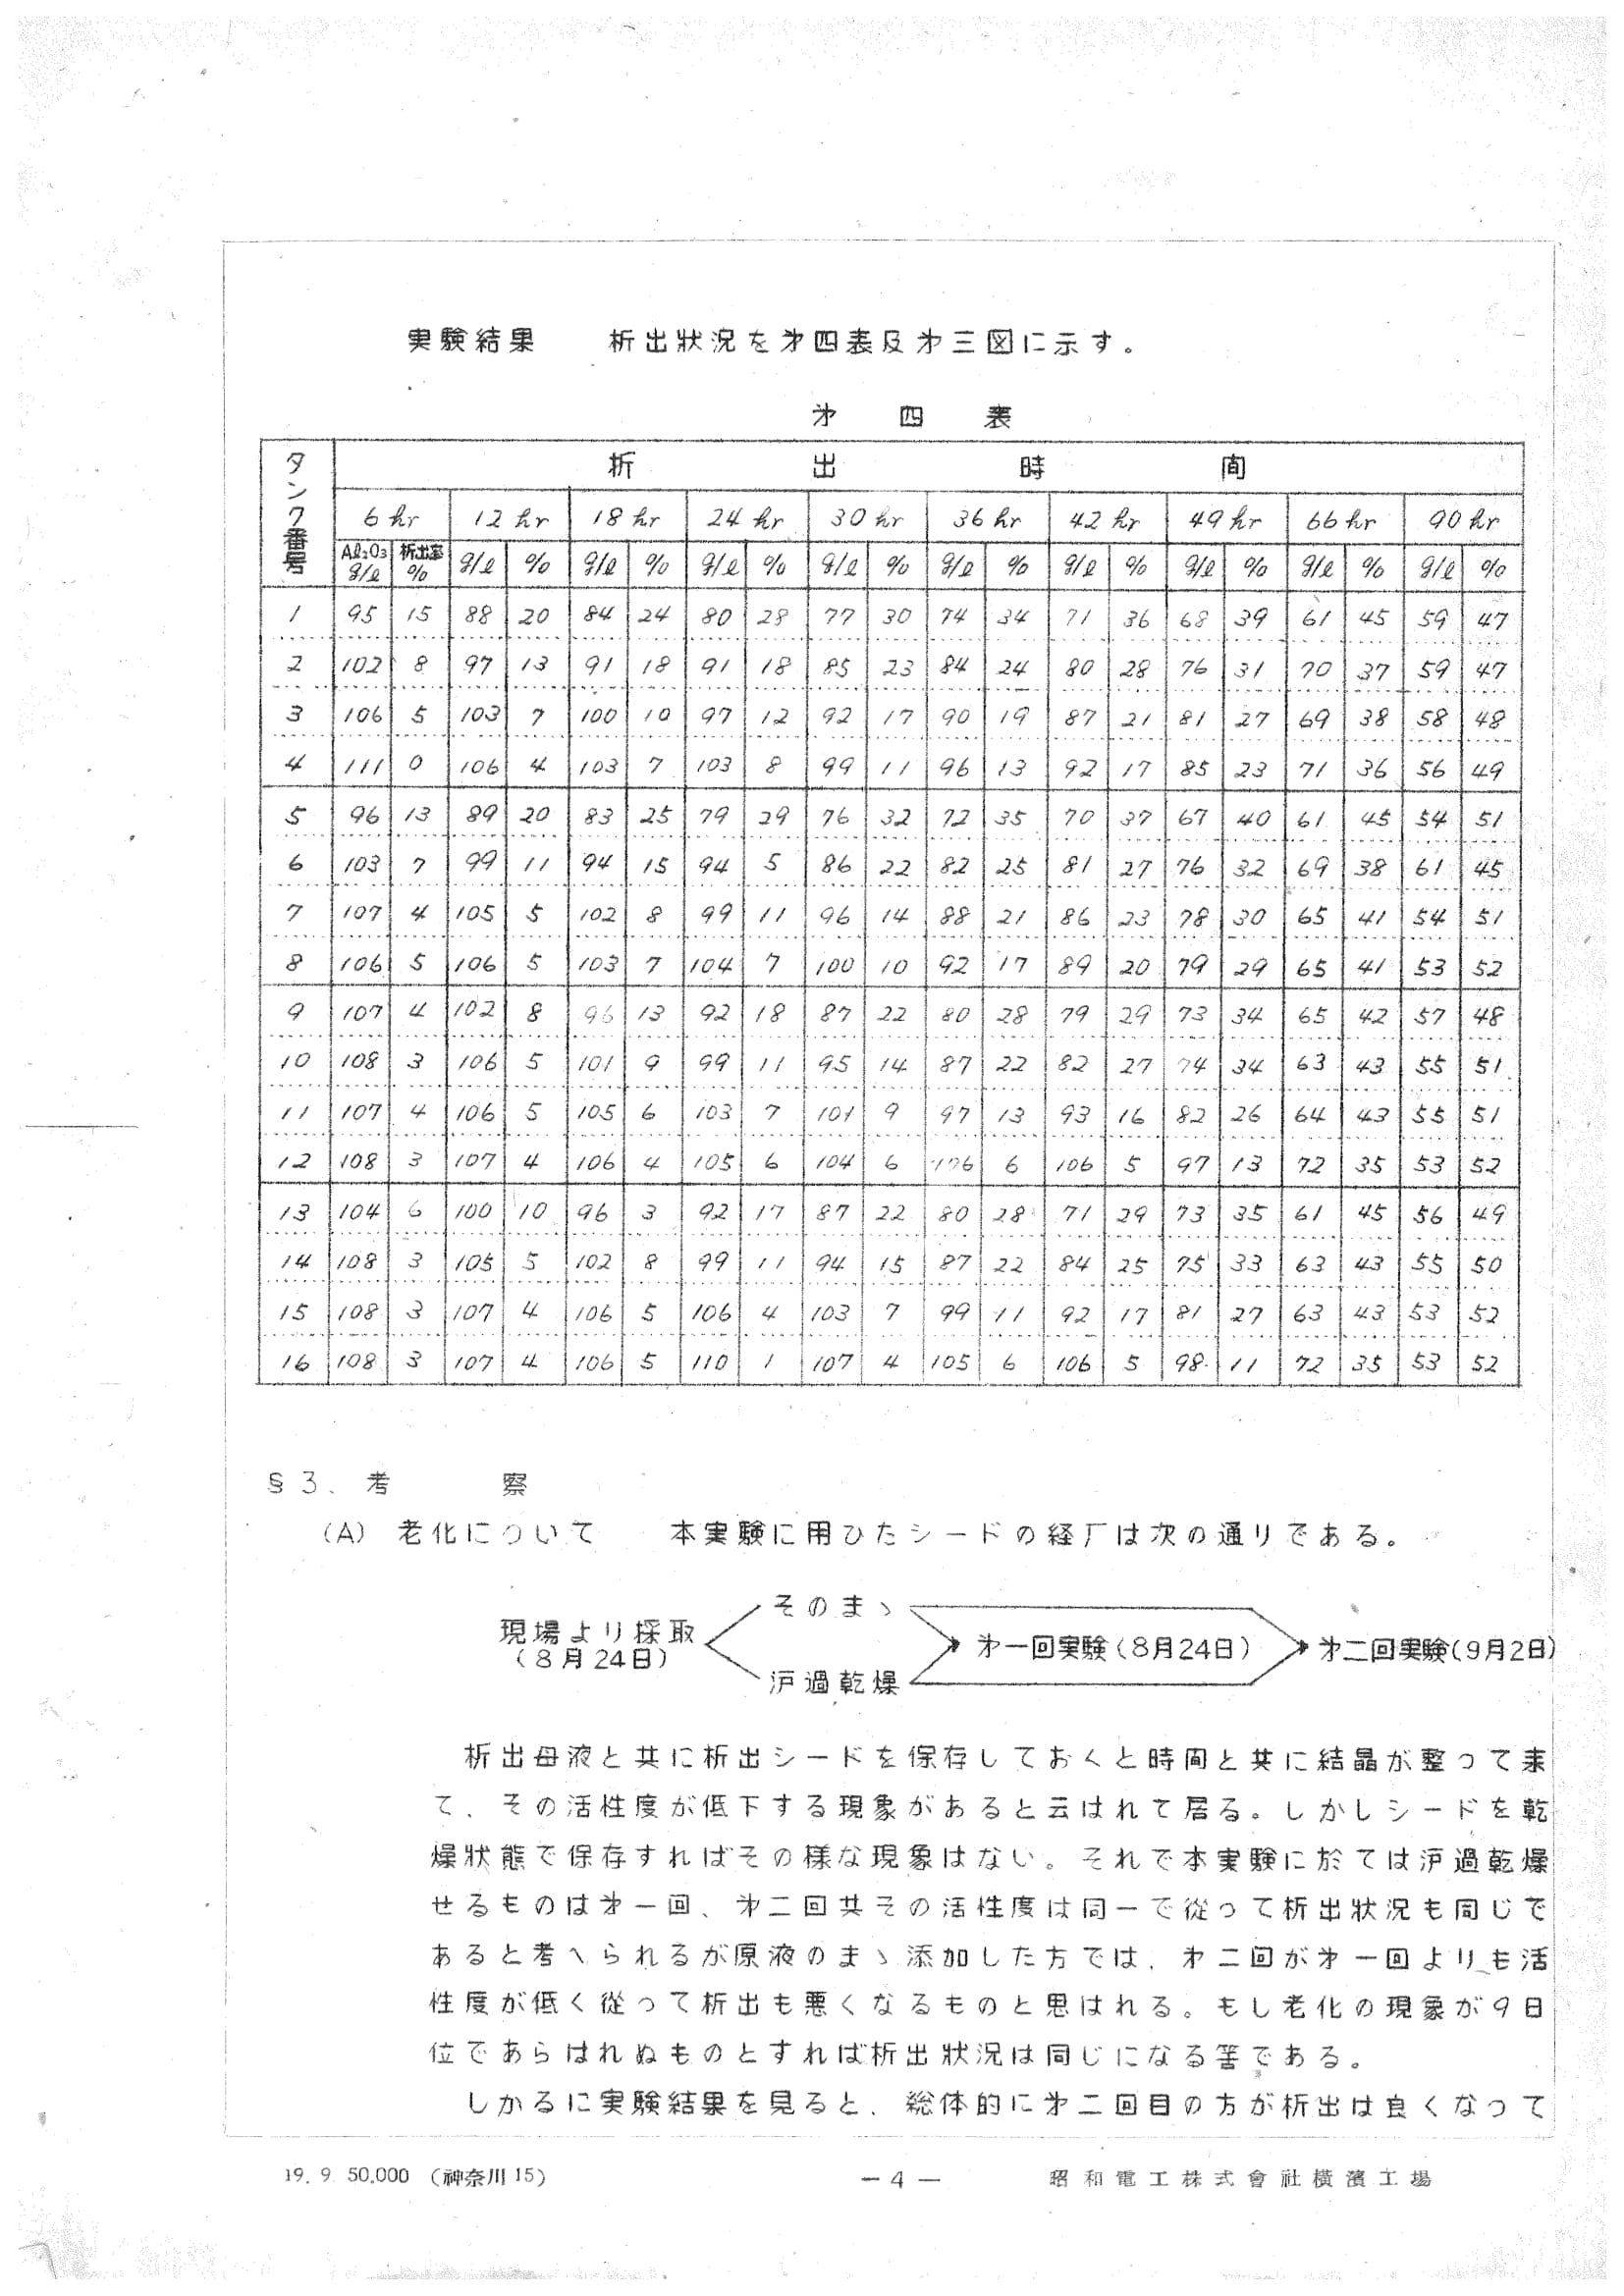 実験結果　析出狀況を才四表及才三図に示す。
才四表
タンク番号 析出時間
6hr 12hr 18hr 24hr 30hr 36hr 42hr 49hr 66hr 90hr
Al₂O₃ g/l 析出率 % g/l % g/l % g/l % g/l % g/l % g/l % g/l % g/l % g/l %
1 95 15 88 20 84 24 80 28 77 30 74 34 71 36 68 39 61 45 59 47
2 102 8 97 13 91 18 91 18 85 23 84 24 80 28 76 31 70 37 59 47
3 106 5 103 7 100 10 97 12 92 17 90 19 87 21 81 27 69 38 58 48
4 111 0 106 4 103 7 103 8 99 11 96 13 92 17 85 23 71 36 56 49
5 96 13 89 20 83 25 79 29 76 32 72 35 70 37 67 40 61 45 54 51
6 103 7 99 11 94 15 94 5 86 22 82 25 81 27 76 32 69 38 61 45
7 107 4 105 5 102 8 99 11 96 14 88 21 86 23 78 30 65 41 54 51
8 106 5 106 5 103 7 104 7 100 10 92 17 89 20 79 29 65 41 53 52
9 107 4 102 8 96 13 92 18 87 22 80 28 79 29 73 34 65 42 57 48
10 108 3 106 5 101 9 99 11 95 14 87 22 82 27 74 34 63 43 55 51
11 107 4 106 5 105 6 103 7 101 9 97 13 93 16 82 26 64 43 55 51
12 108 3 107 4 106 4 105 6 104 6 6 106 5 97 13 72 35 53 52
13 104 6 100 10 96 3 92 17 87 22 80 28 71 29 73 35 61 45 56 49
14 108 3 105 5 102 8 99 11 94 15 87 22 84 25 75 33 63 43 55 50
15 108 3 107 4 106 5 106 4 103 7 99 11 92 17 81 27 63 43 53 52
16 108 3 107 4 106 5 110 1 107 4 105 6 106 5 98 11 72 35 53 52
§3. 考察
(A) 老化について　本実験に用ひたシードの経厂は次の通りである。
そのまゝ
現場より採取
(8月24日)
才一回実験(8月24日) 才二回実験(9月2日)
沪過乾燥
析出母液と共に析出シードを保存しておくと時間と共に結晶が整つて来
て、その活性度が低下する現象があると云はれて居る。しかしシードを乾
燥狀態で保存すればその様な現象はない。それで本実験に於ては沪過乾燥
せるものは才一回、才二回共その活性度は同一で従つて析出狀況も同じで
あると考へられるが原液のまゝ添加した方では、才二回が才一回よりも活
性度が低く従つて析出も悪くなるものと思はれる。もし老化の現象が9日
位であらはれぬものとすれば析出狀況は同じになる筈である。
しかるに実験結果を見ると、総体的に才二回目の方が析出は良くなつて
19.9. 50,000 (神奈川15)　—4—　昭和電工株式會社横濱工場